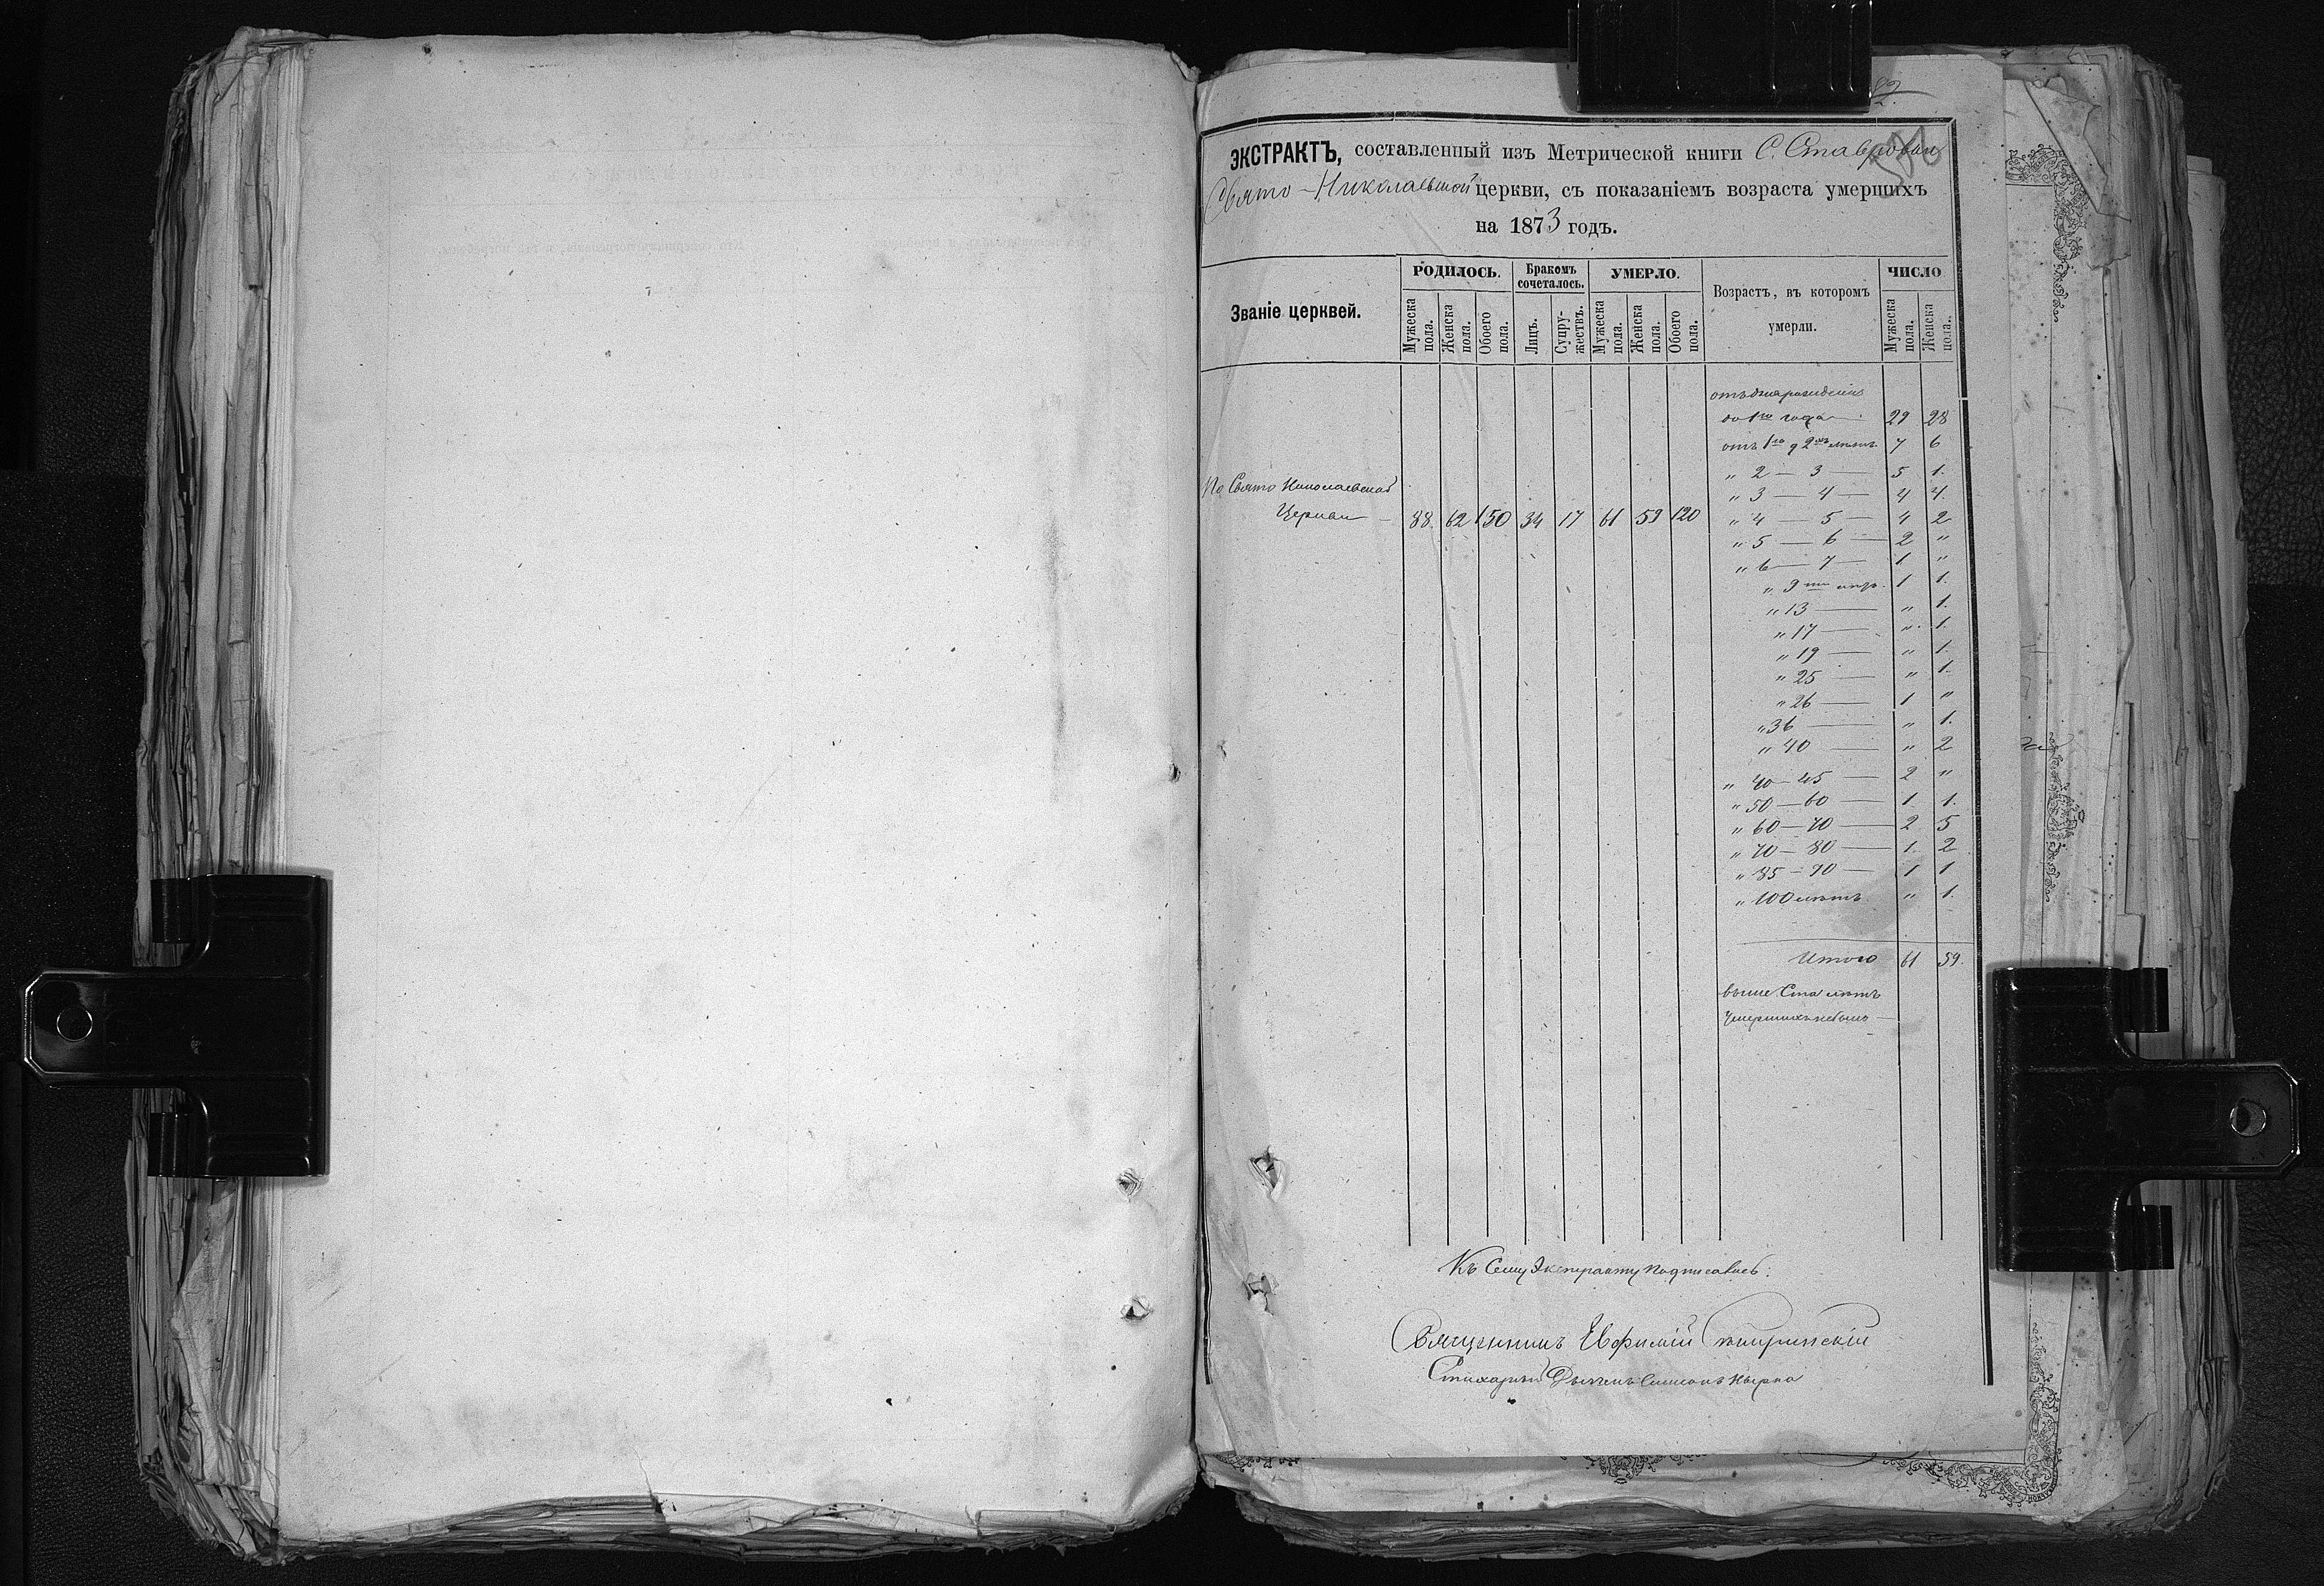 ЭКСТРАКТЪ, составленный изъ Метрической книги С. Ставрован
Свято-Николаевской церкви, съ показаніемъ возраста умершихъ
на 1873 годъ.
Званіе церквей.
РОДИЛОСЬ.
Бракомъ сочеталось.
УМЕРЛО.
Возрастъ, въ которомъ умерли.
ЧИСЛО
Мужеска пола.
Женска пола.
Обоего пола.
Лицъ.
Супружествъ.
Мужеска пола.
Женска пола.
Обоего пола.
Мужеска пола.
Женска пола.
отъ дня рожденія
до 1го года 29 28
отъ 1го д 2хъ лѣтъ 7 6
" 2 — 3 — 5 1.
" 3 — 4 — 4 4.
По Свято Николаевской
Церкви — 88 62 150 34 17 61 59 120
" 4 — 5 — 4 2
" 5 — 6 — 2 "
" 6 — 7 — 1 "
" 9 1 1.
" 13 — " 1.
" 17 — " 1.
" 19 — " 1.
" 25 — " 1.
" 26 — 1 "
" 36 — " 1.
" 40 — " 2
" 40 — 45 — 2 "
" 50 — 60 — 1. 1.
" 60 — 70 — 2 5
" 70 — 80 — 1. 2
" 85 — 90 — 1 1
" 100 лѣтъ " 1.
Итого 61 59.
выше Ста лѣтъ
Умершихъ небыло —
Къ Сему Экстракту Подписались:
Священникъ Ефимій
Стихарный Дьячекъ Симеонъ